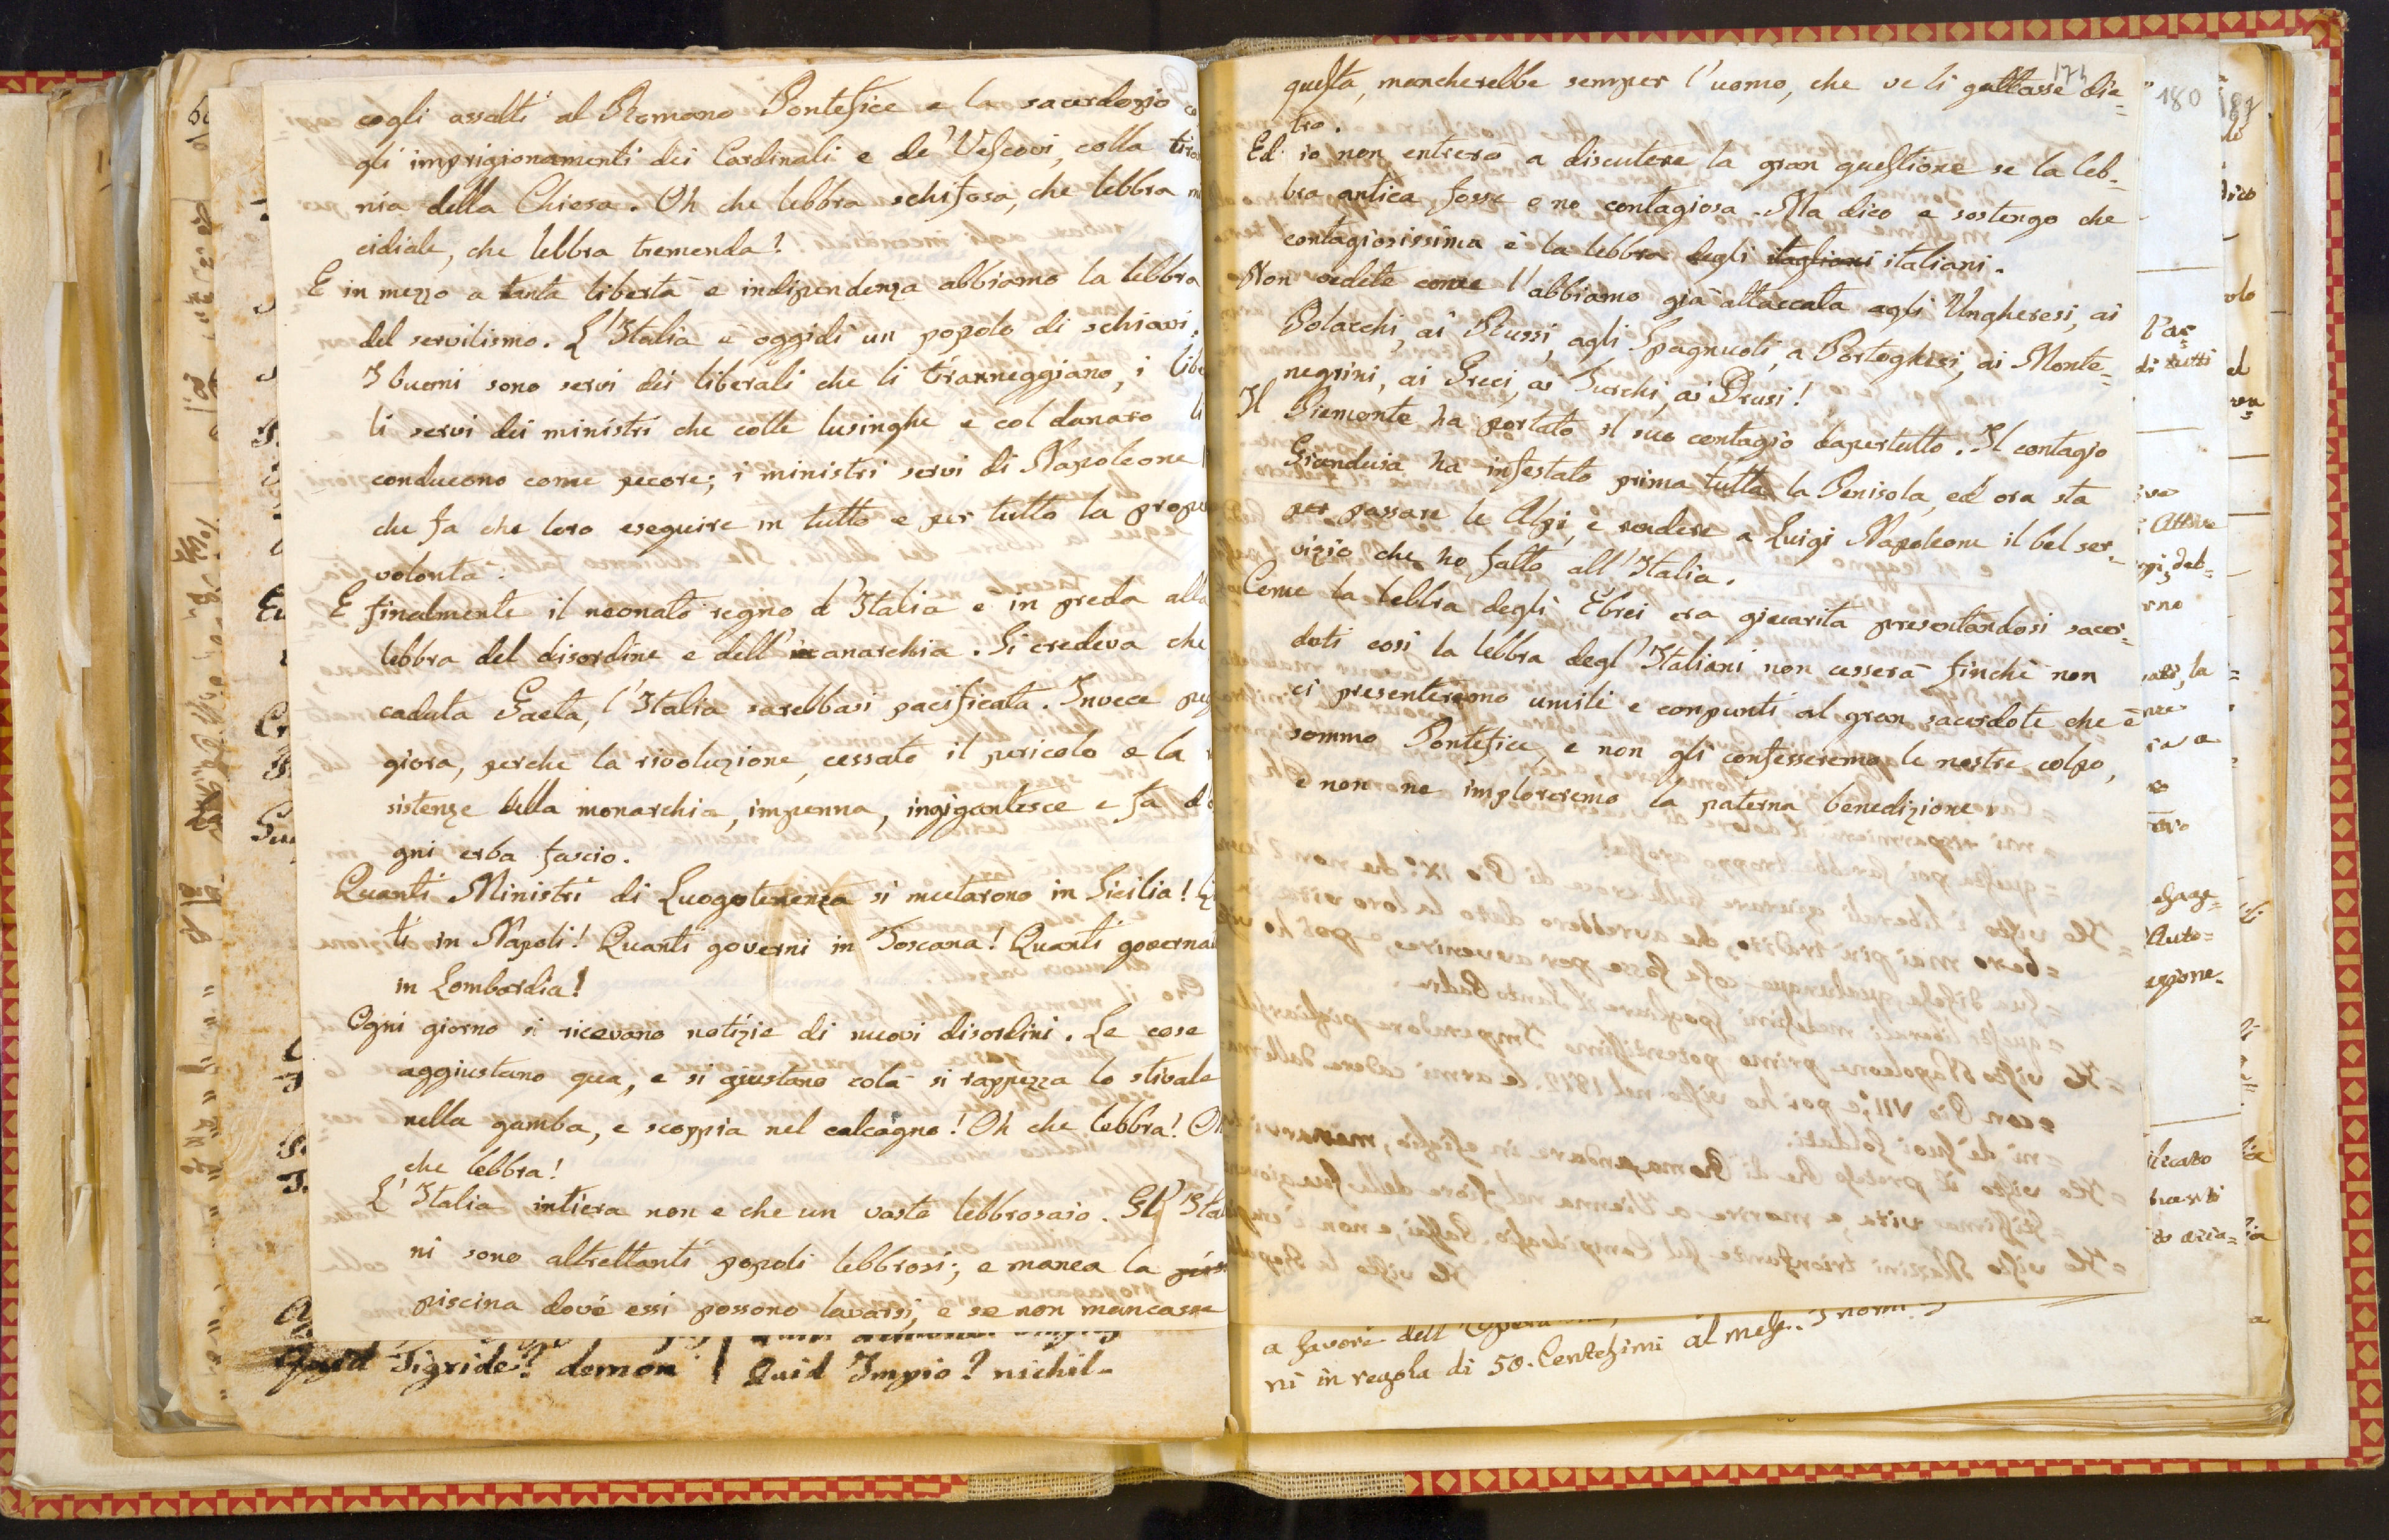 cogli assalti al Romano Pontefice e la sacerdozio co
gli imprigionamenti dei Cardinali e de' Vescovi, colla tiran
nia della Chiesa. Oh che lebbra schifosa, che lebbra mi
cidiale, che lebbra tremenda!
E in mezzo a tanta libertà e indipendenza abbiamo la lebbra
del servilismo. L'Italia è oggidì un popolo di schiavi.
I buoni sono servi dei liberali che li tiranneggiano, i libe
li servi dei ministri che colle lusinghe e col danaro li
conducono come pecore; i ministri servi di Napoleone
che fa che loro eseguire in tutto e per tutto la propri
volontà.
E finalmente il neonato regno d'Italia è in preda alla
lebbra del disordine e dell' anarchia. Si credeva che
caduta Gaeta, l'Italia sarebbasi pacificata. Invece peg
giora, perchè la rivoluzione, cessato il pericolo e la
sistenze della monarchia, impenna, ingigantesce e fa d'o
gni erba fascio.
Quanti Ministri di Luogotenenza si mutarono in Sicilia!
ti in Napoli! Quanti governi in Toscana! Quanti governa
in Lombardia!
Ogni giorno si ricevano notizie di nuovi disordini. Le cose
aggiustano qua, e si giustano colà si rappezza lo stivale
nella gamba, e scoppia nel calcagno! Oh che lebbra! Oh
che lebbra!
L'Italia intiera non e che un vasto lebbrosaio. Gl' Ital
ni sono altrettanti popoli lebbrosi; e manca la
piscina dove essi possono lavarsi, e se non mancasse
Quid Tigride? demon | Quid Impio? nichil-
174
questa, mancherebbe semper l'uomo, che ve li gattasse die=
tro.
Ed io non entrerò a discutere la gran questione se la leb-
bra antica fosse o no contagiosa. Ma dico e sostengo che
contagiosissima è la lebbra degli itaglioni italiani.
Non vedete come l'abbiamo già attaccata agli Ungheresi, ai
Polacchi, ai Russi, agli Spagnuoli, a Portoghesi, ai Monte=
negrini, ai Greci, ai Turchi, ai Drusi!
Il Piemonte ha portato il suo contagio dapertutto. Il contagio
Gianduia ha infestato prima tutta la Penisola, ed ora sta
per passare le Alpi, e rendere a Luigi Napoleone il bel ser-
vizio che ho fatto all'Italia.
Come la lebbra degli Ebrei era giuarita presentandosi sacer=
doti così la lebbra degl'Italiani non cesserà finchè non
ci presenteremo umili e conpunti al gran sacerdote che è
sommo Pontefice, e non gli confesseremo le nostre colpo,
e non ne imploreremo la paterna benedizione.
a favore dell'
ni in regola di 50. Centesimi al mese. I nomi
180
181
l'ac=
di tutti
Auto=